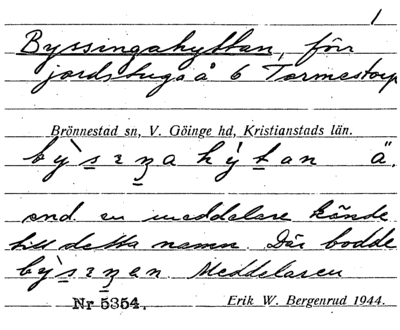 1
Byssingahyttan, förr
jordstuga å 6 Tormestorp
Brönnestad sn, V. Göinge hd, Kristianstads län.
bỳsɪŋahỳtan ä.
end. en meddelare kände
till detta namn. Där bodde
bỳsɪŋen. Meddelaren
Nr 5354. Erik W. Bergenrud 1944.